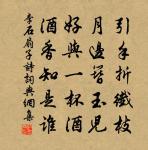 引手折纖枝
月邊簪玉兒
好與一杯酒
酒香知是誰
李石扇子詩詞典網集